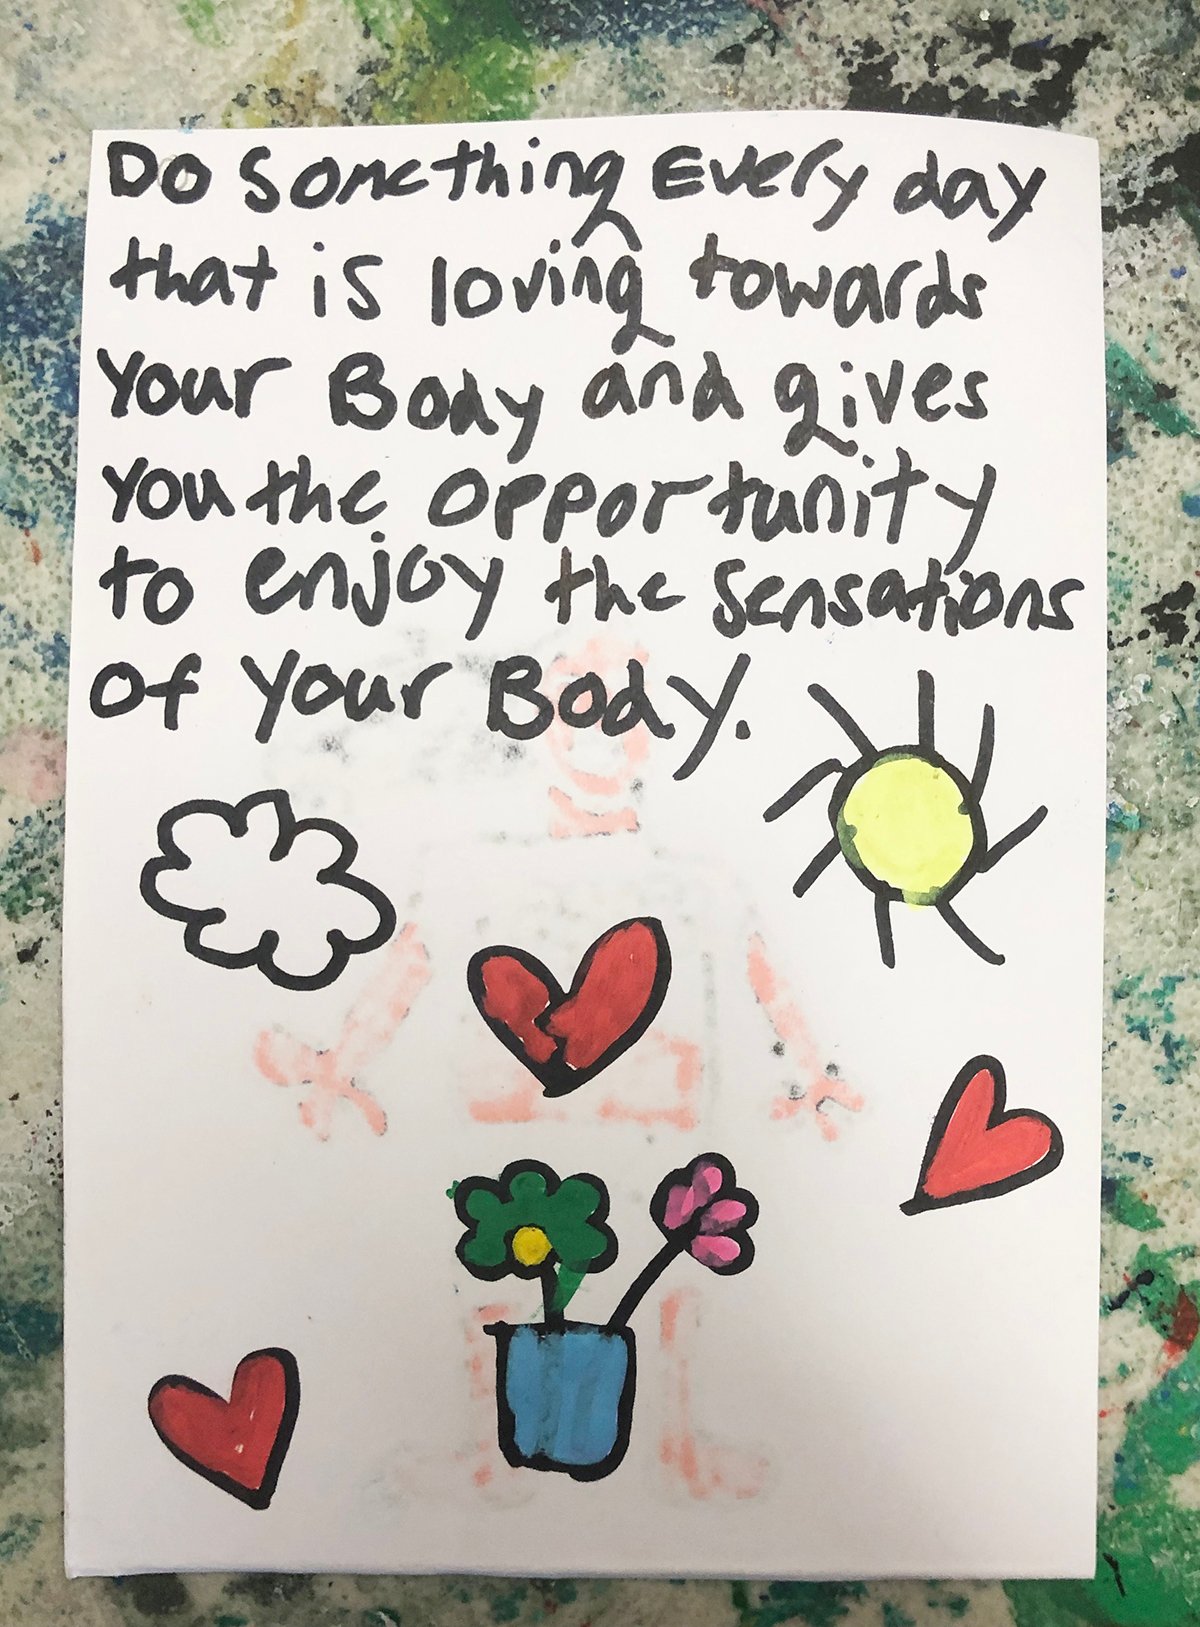 Do Something Every day
that is loving towards
Your Body and gives
You the opportunity
to enjoy the Sensations
of Your Body.